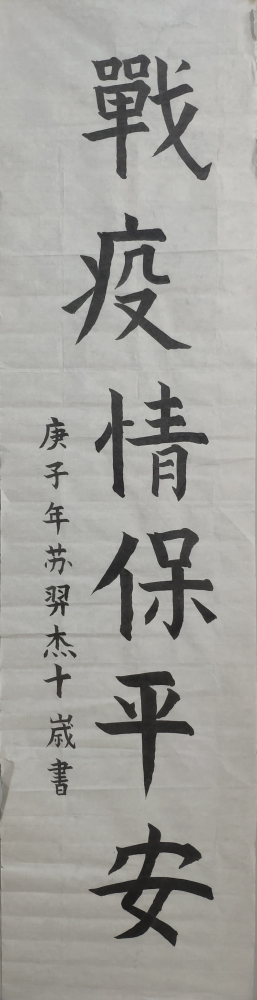 戰疫情保平安
庚子年苏羿杰十歲書